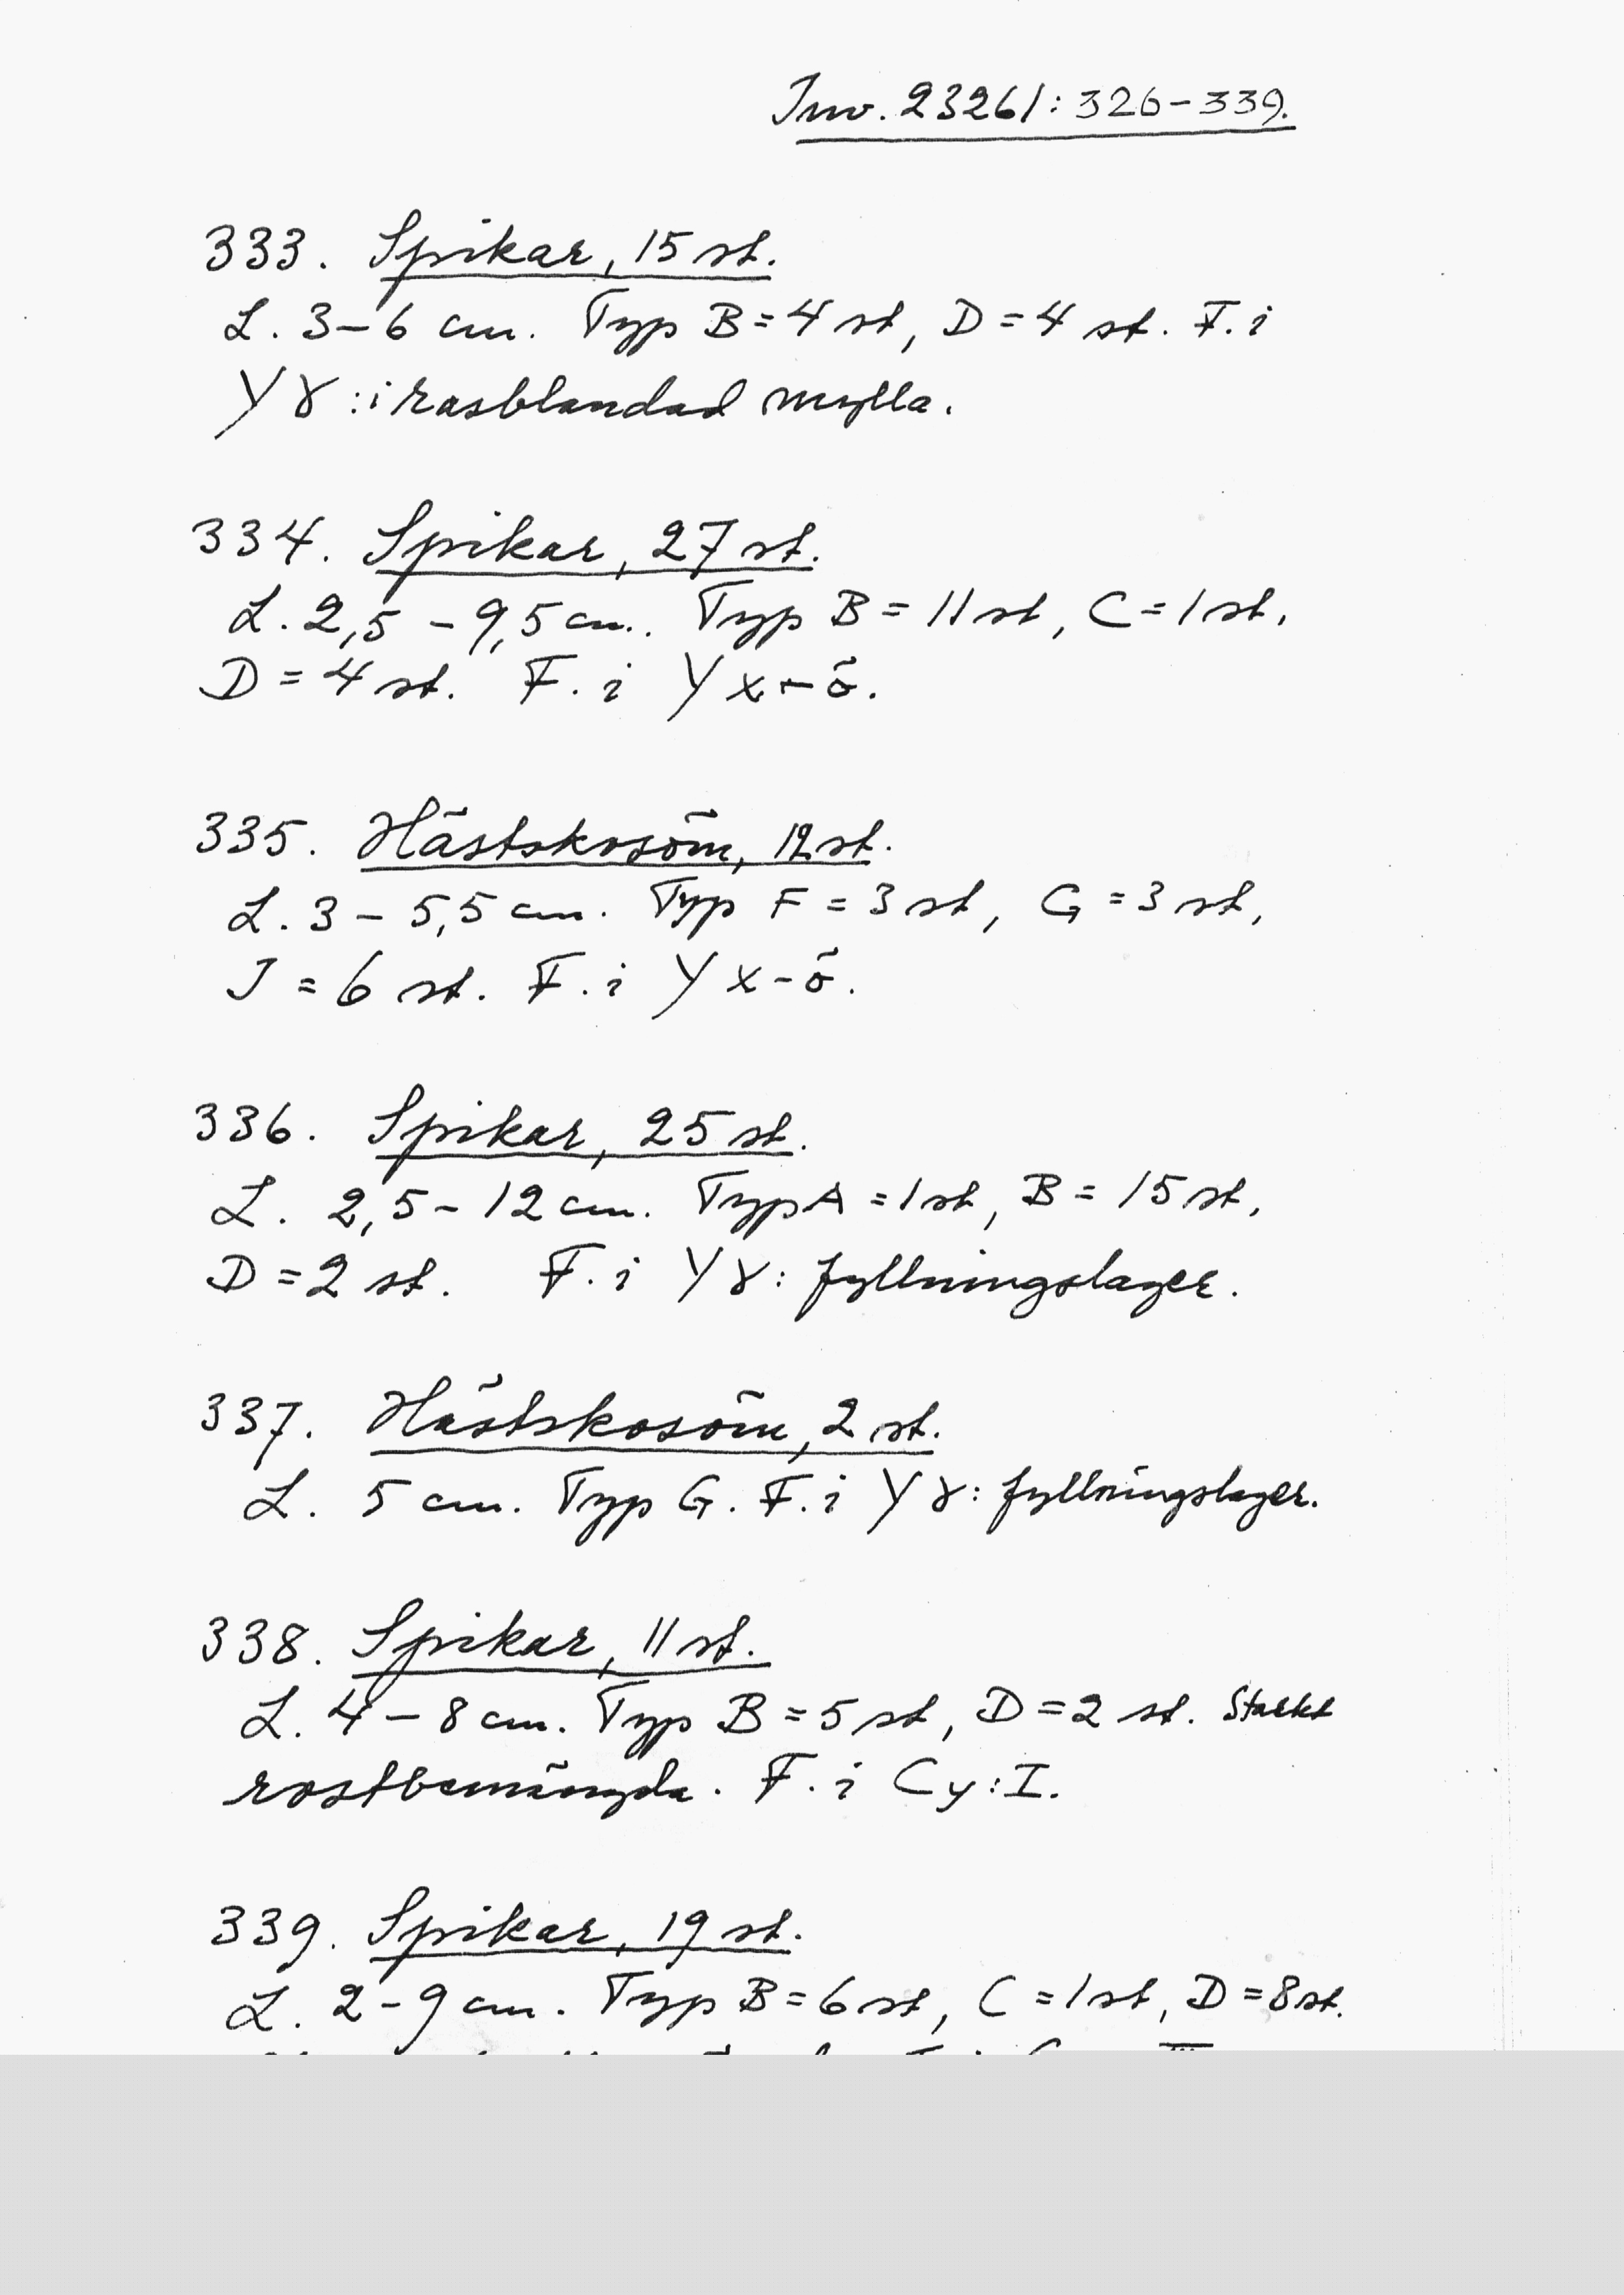 Inv. 23261: 326-339.
333. Spikar, 15 st.
L. 3-6 cm. Typ B=4 st, D=4 st. F. i
Yγ: i rasblandad mylla.
334. Spikar, 27 st.
L. 2,5-9,5 cm. Typ B=11 st, C=1 st,
D=4 st. F. i Yx-ö.
335. Hästskosöm, 12 st.
L. 3-5,5 cm. Typ F=3 st, G=3 st,
J=6 st. F. i Yx-ö.
336. Spikar, 25 st.
L. 2,5-12 cm. Typ A=1 st, B=15 st,
D=2 st. F. i Yγ: fyllningslager.
337. Hästskosöm, 2 st.
L. 5 cm. Typ G. F. i Yγ: fyllningslager.
338. Spikar, 11 st.
L. 4-8 cm. Typ B=5 st, D=2 st. Starkt
rostbemängda. F. i Cy: I.
339. Spikar, 19 st.
L. 2-9 cm. Typ B=6 st, C=1 st, D=8 st.